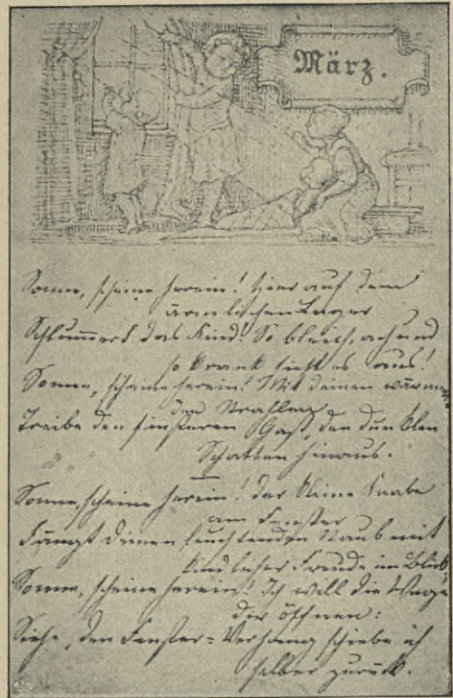 März.
Sonne, scheine herein! Hier auf dem
ärmlichen Lager
Schlummert das Kind! So bleich, ach und
so krank sieht es aus!
Sonne, scheine herein! Mit deinen wärmen
den Strahlen
Treibe den finsteren Gast, den dunklen
Schatten hinaus.
Sonne, scheine herein! Der kleine Knabe
am Fenster
Fängt deinen leuchtenden Staub mit
kindlicher Freude im Blick
Sonne, scheine herein! Ich will die
der öffnen:
Siehe, den Fenster=Vorhang schiebe ich
selber zurück.